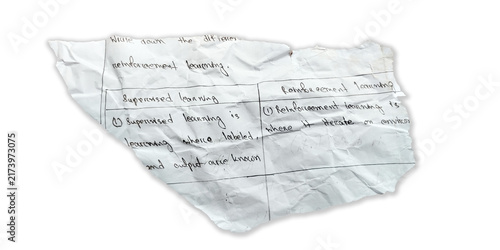 down the
reinforcement learning.
Supervised learning
Reinforcement learning
(1) Supervised learning is
learning where labeled
and output are known
(1) Reinforcement learning is
where it